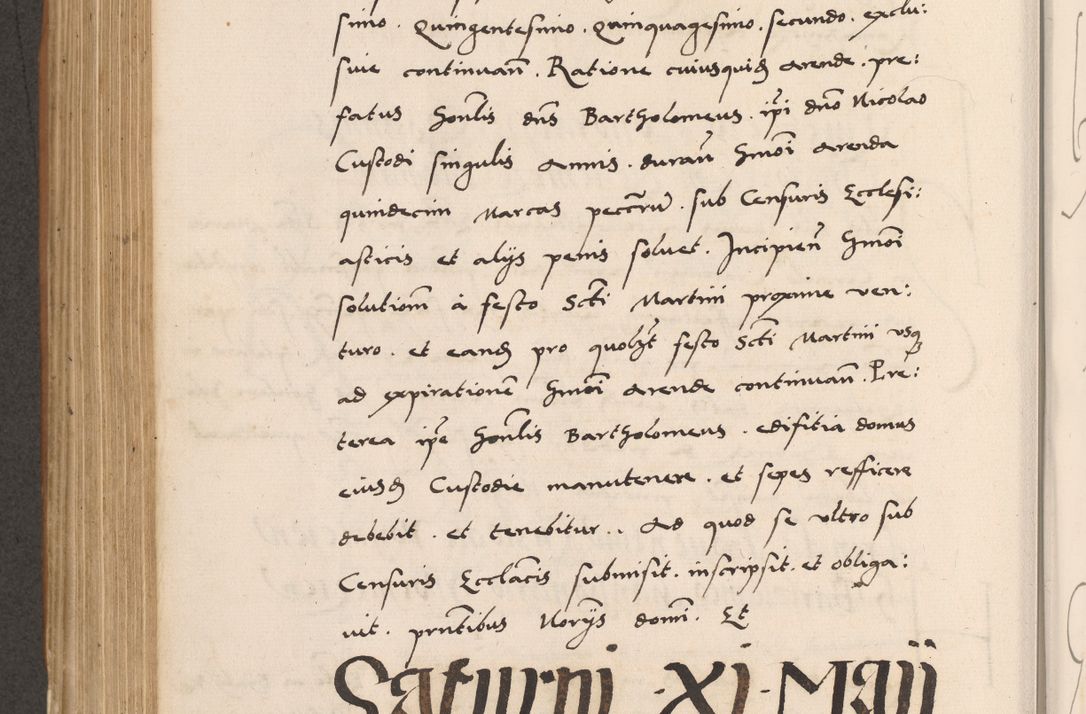 simo . Quingentesimo . Quinquagesimo . secundo . exclu:
siue continuan̄ . Ratione cuiusquid̄ Arende . pre:
fatus Hon̄lis dn̄s Bartholomeus . ip̄i dn̄o Nicolao
Custodi singulis Annis . duran̄ Hmōi Arenda
quindecim Marcas pecc̄ru . sub Censuris Ecclesi:
asticis et alijs penis soluet . Incipien̄ Hmōi
solutiom̄ à festo Sctī Martini proxime ven:
turo . et eand̄ pro quolꝫt festo Sctī Martini vsqꝫ
ad expirationē Hmōi Arende continuan̄ . Pre:
terea ip̄e Hon̄lis Bartholomeus . edifitia domus
eiusd̄ Custodie manutenere . et sepes refficere
debebit . et tenebitur . . Ad quod se vltro sub
Censuris Eccl̄acis submisit . inscripsit . et obliga:
uit . prn̄tibus Norīs dom̄i . Et
Saturni · XI · Maij